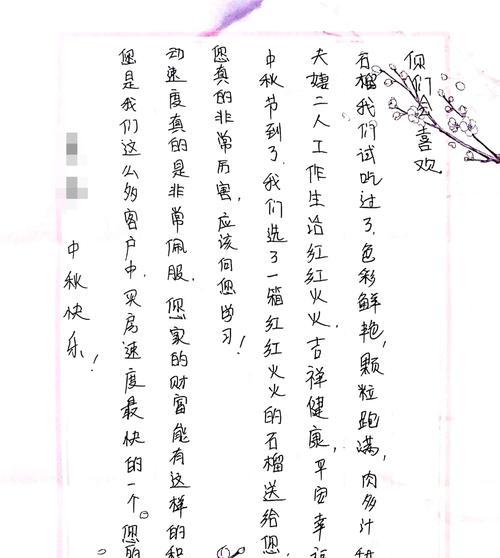 中秋快乐！
您是我们这么多客户中，买房速度最快的一个。您的
动速度真的是非常佩服。您家的财富能有这样的积
您真的非常厉害，应该向您学习！
中秋节到了，我们选了一箱红红火火的石榴送给您，
夫妻二人工作生活红红火火，吉祥健康，平安幸
石榴我们试吃过了，色彩鲜艳，颗粒跑满，肉多汁
你们会喜欢